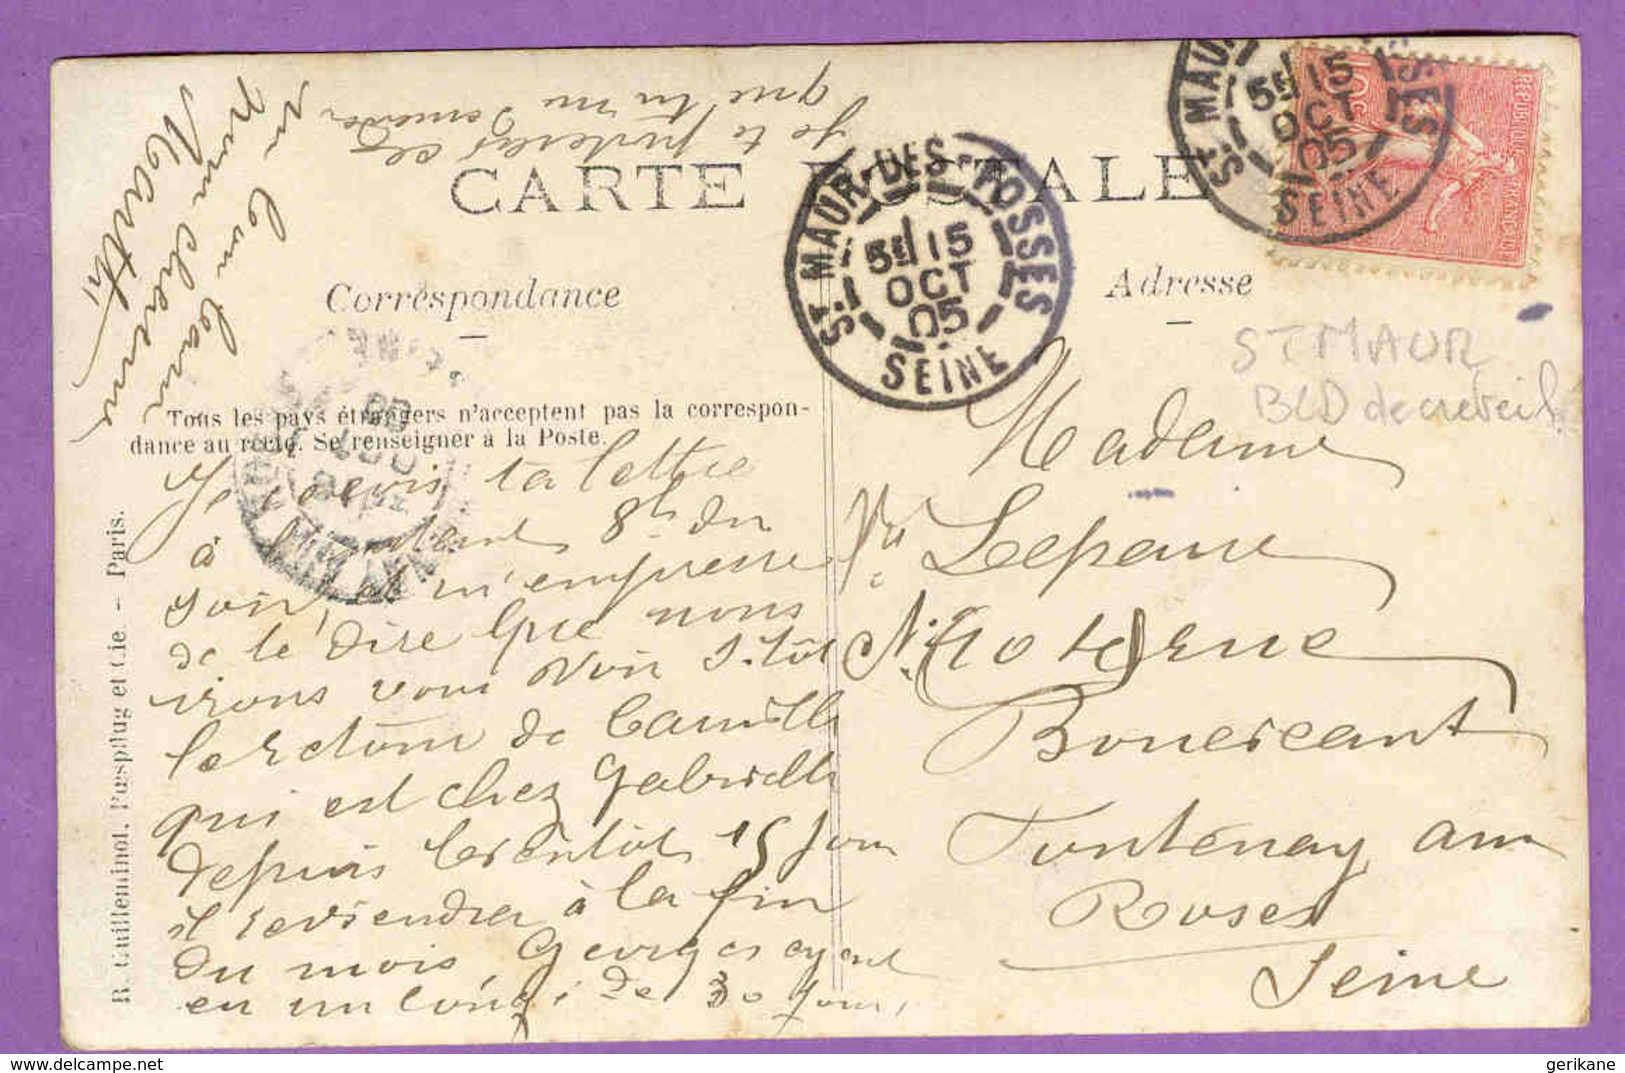 CARTE POSTALE
Correspondance
Adresse
Tous les pays étrangers n'acceptent pas la correspon-
dance au recto. Se renseigner à la Poste.
R. Guilleminot, Bœspflug et Cie. - Paris.
ST MAUR-DES-FOSSES
5E 15
OCT
05
SEINE
ST MAUR
5E 15
OCT
05
SEINE
10c
ST MAUR
BLD de creteil
Je reçois ta lettre
à 8h du
soir, et m'empresse
de te dire que nous
irons vous voir sitôt
le retour de Camille
qui est chez Gabrielle
depuis bientôt 15 jours
il reviendra à la fin
du mois, Georges ayant
eu un congé de 30 jours,
je te porterai ce
que tu me demandes
un bon baiser
Marthe
Madame
Lepaire
Boucicaut
Fontenay aux
Roses
Seine
gerikane